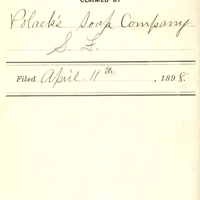 CLAIMED BY
Polack's Soap Company
S. F.
Filed April 11th, 1898.